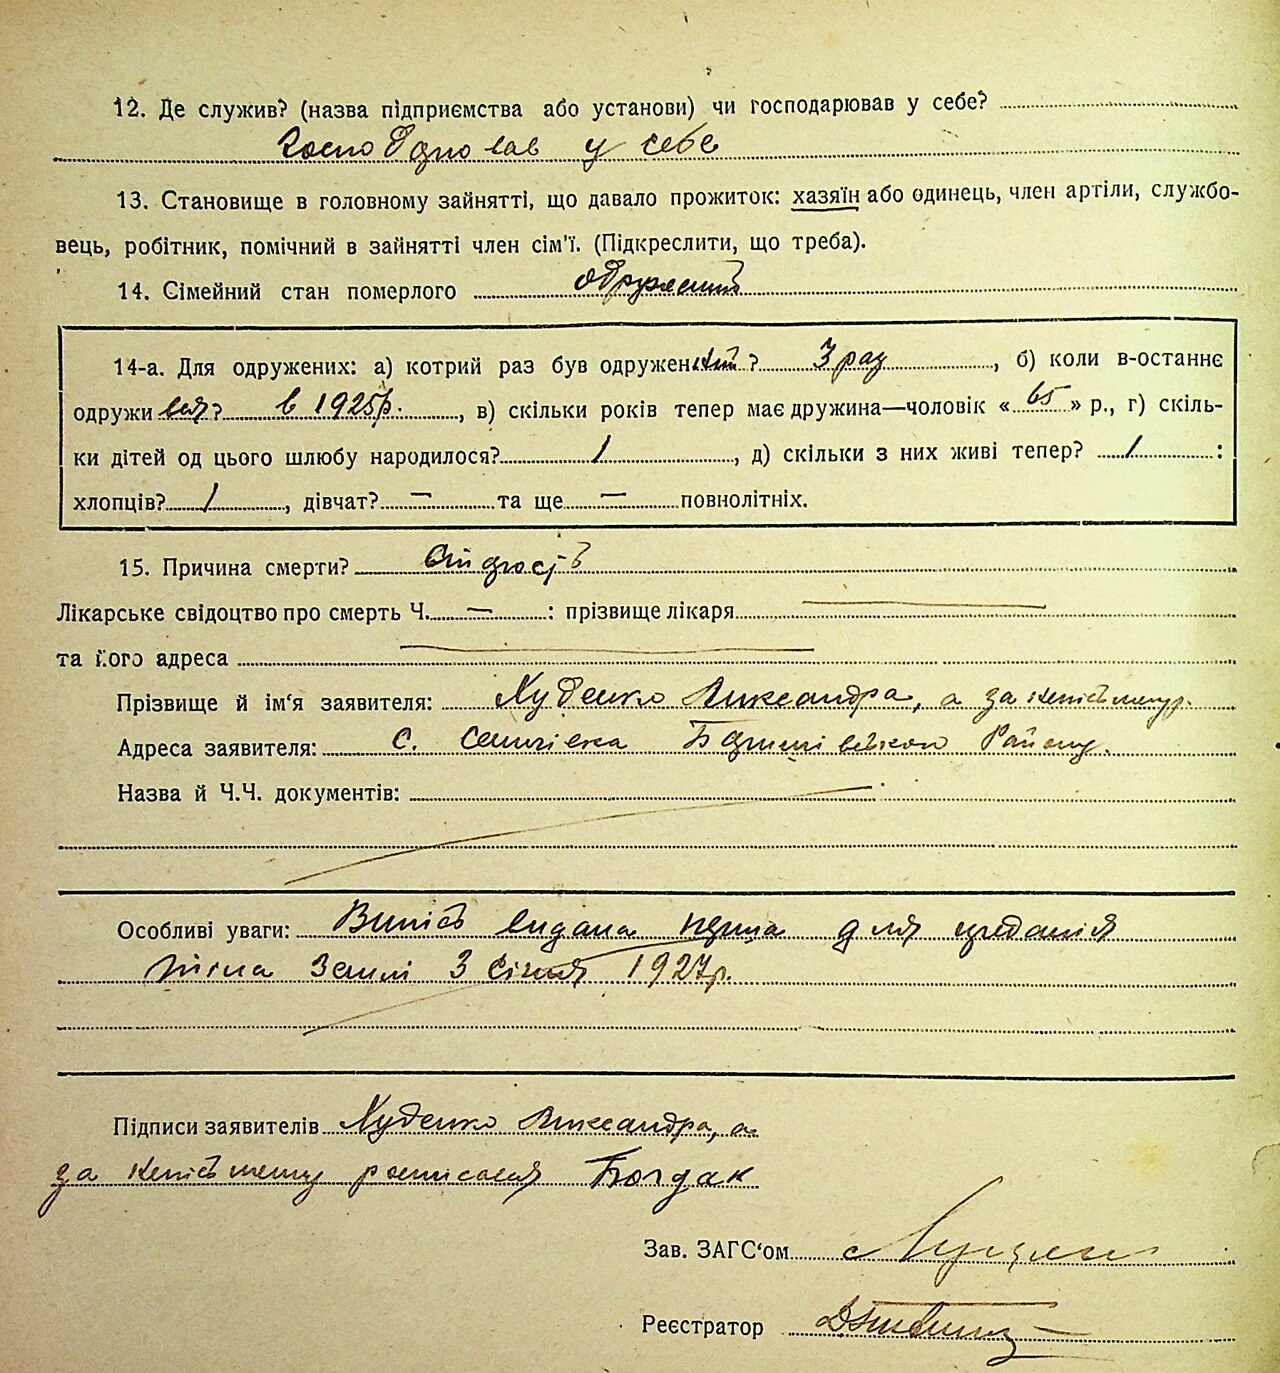 12. Де служив? (назва підприємства або установи) чи господарював у себе?
у себе
13. Становище в головному зайнятті, що давало прожиток: хазяїн або одинець, член артіли, службо-
вець, робітник, помічний в зайнятті член сім'ї. (Підкреслити, що треба).
14. Сімейний стан померлого одружений
14-а. Для одружених: а) котрий раз був одружений? 3 раз, б) коли в-останнє
одружився? в 1925 р., в) скільки років тепер має дружина—чоловік « 65 » р., г) скіль-
ки дітей од цього шлюбу народилося? 1, д) скільки з них живі тепер? 1 :
хлопців? 1, дівчат? — та ще — повнолітніх.
15. Причина смерти? Старость
Лікарське свідоцтво про смерть Ч. — : прізвище лікаря
та його адреса
Прізвище й ім'я заявителя: Худенко Александра, а за
Адреса заявителя: с. Району.
Назва й Ч.Ч. документів:
Особливі уваги: Випись видана для
тіла землі 3 січня 1927 р.
Підписи заявителів Худенко Александра, а
за росписался Богдак
Зав. ЗАГС'ом
Реєстратор